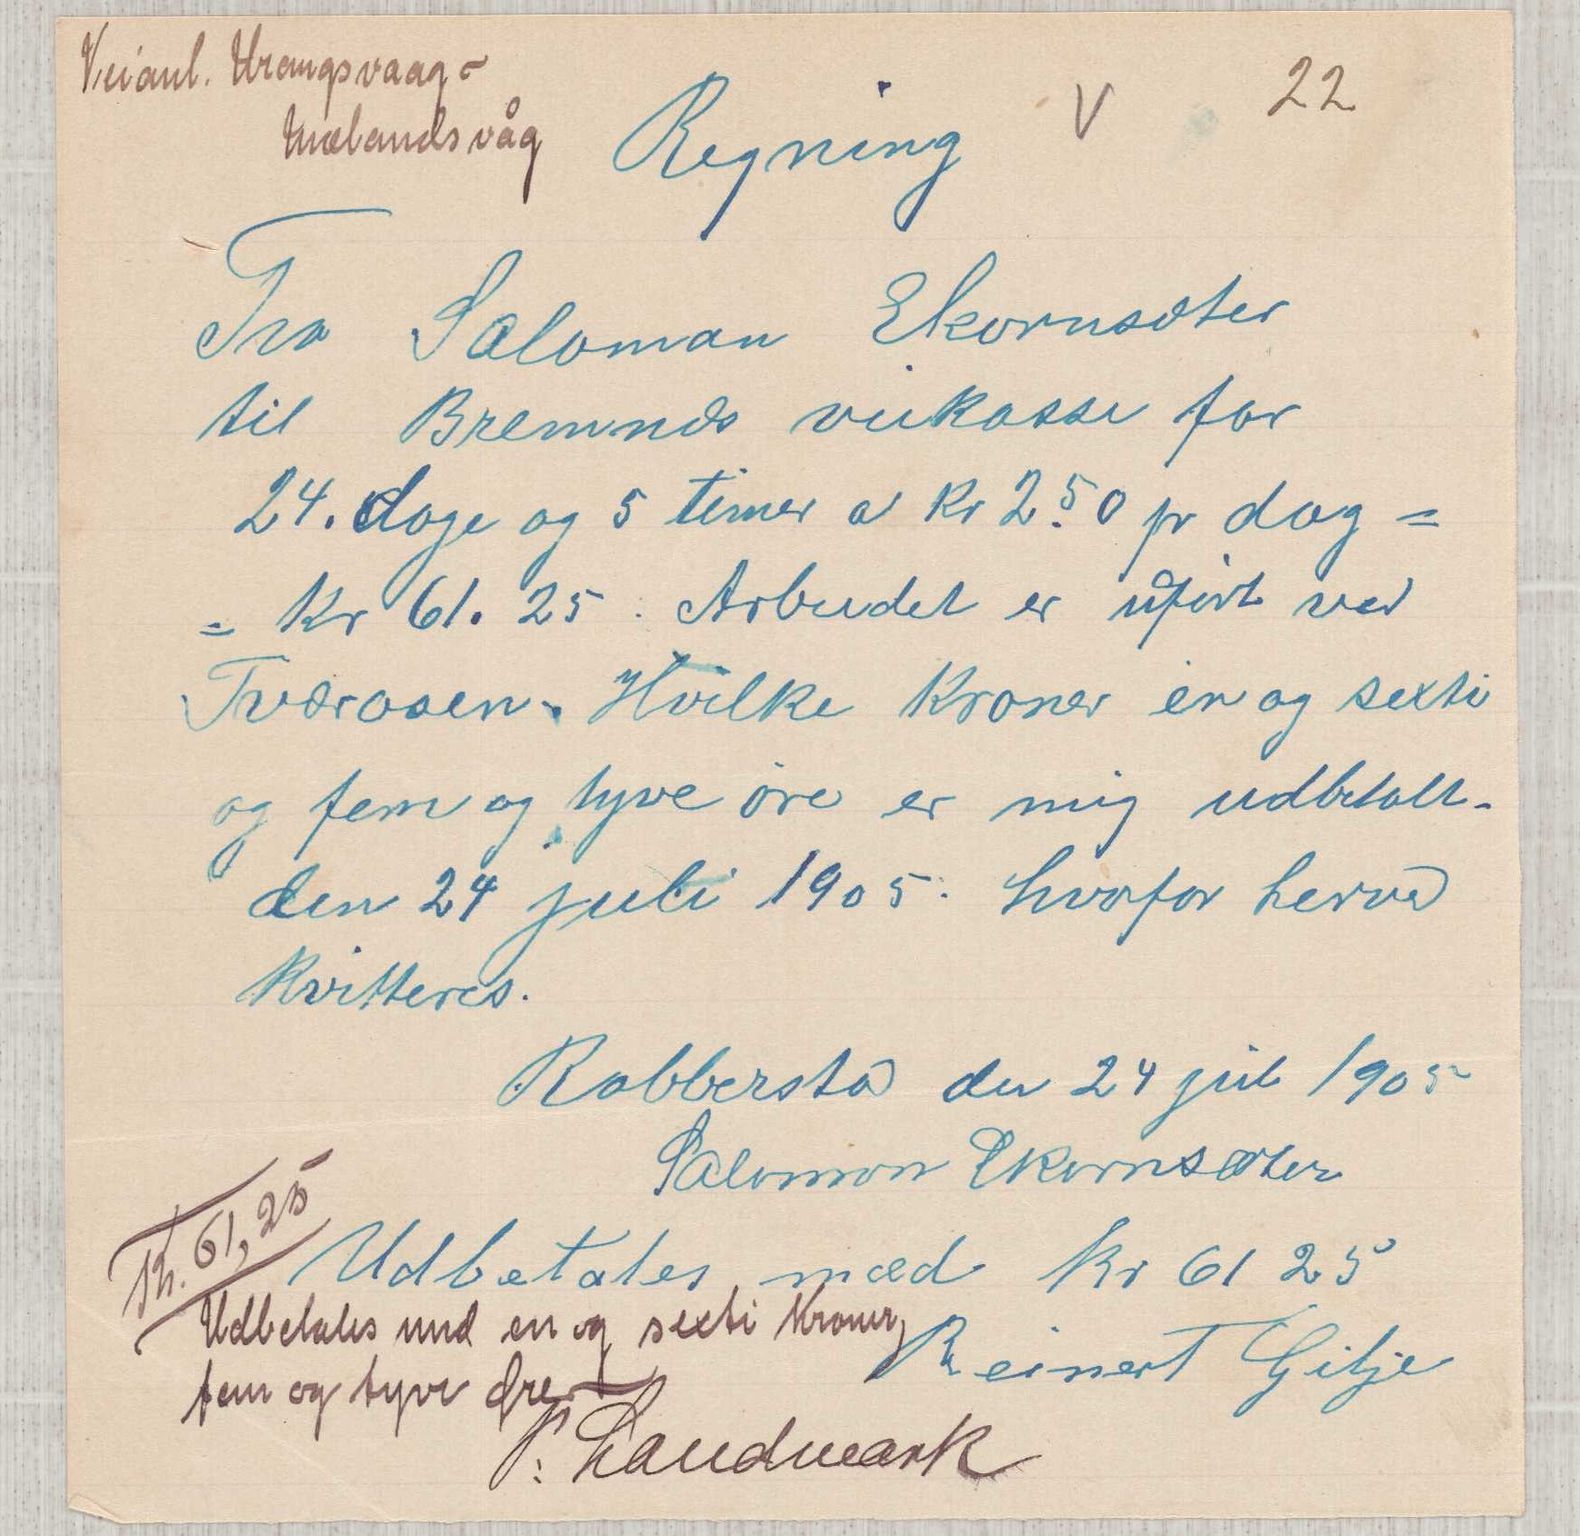 Veianl. Urangsvaag -
Mælandsvåg
Regning
V
22
Fra Saloman Ekornsæter
til Bremnæs veikasse for
24. dage og 5 timer a kr 2.50 pr dag =
= kr 61.25. Arbeidet er uført ved
Tværaaen. Hvilke Kroner en og sexti
og fem og tyve øre er mig udbetalt.
den 24 juli 1905. hvorfor herved
kvitteres.
Robberstad den 24 juli 1905
Salomon Ekornsæter
Kr. 61,25
Udbetales med kr 61 25
Reinert Gilje
Udbetales med en og sexti Kroner,
fem og tyve Øre.
P. Landmark